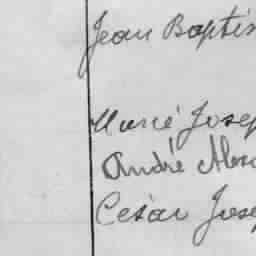 Jean Baptis
Marié Josep
André Alex
César Josep